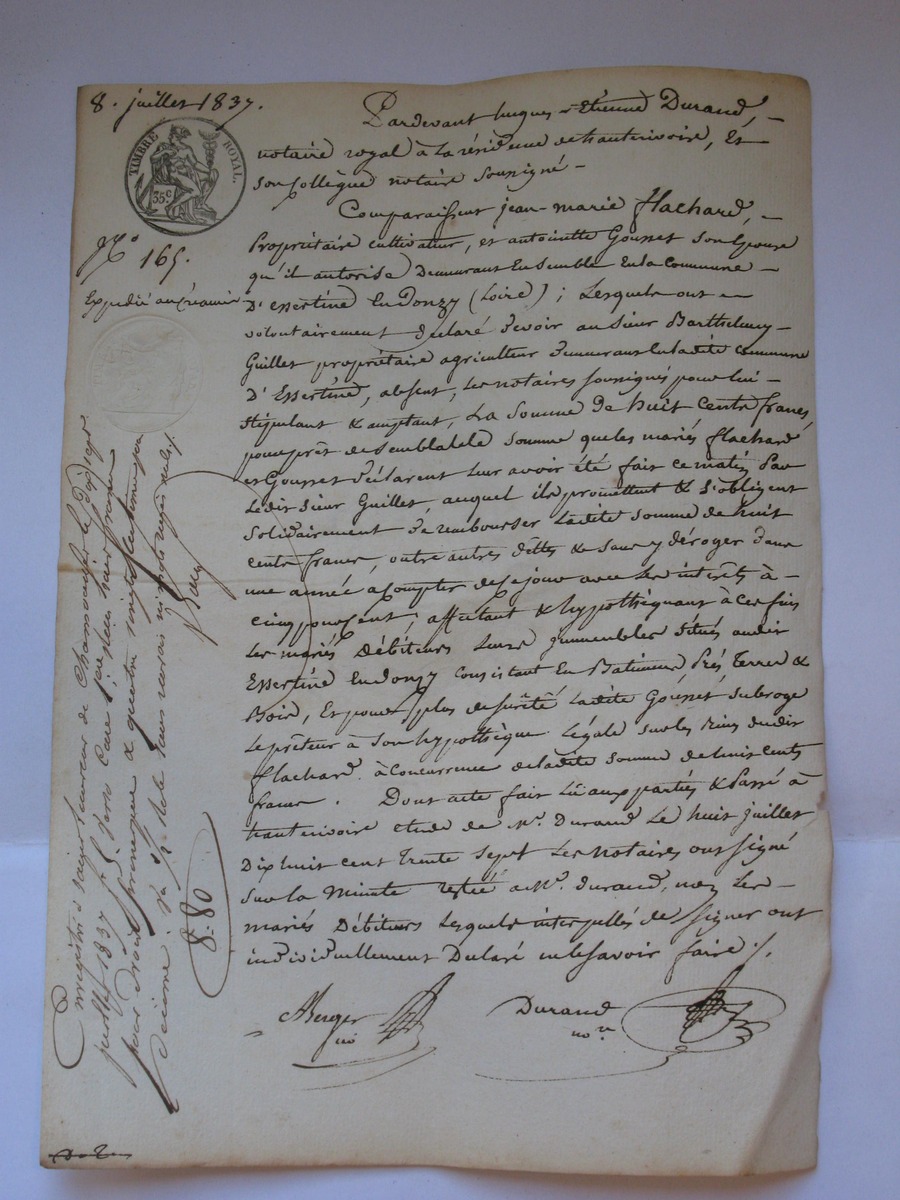 8. juillet 1837.
TIMBRE ROYAL.
35c
No 165.
Expédié au Créancier
Pardevant hugues-Etienne Durand,
notaire royal à la résidence de hauterivoire, Et
son Collègue notaire soussigné
Comparaissent jean-marie flachard,
Propriétaire cultivateur, et antoinette Gousset son Epouse
qu'il autorise Demeurant Ensemble En la Commune
D'essertine En Donzy (Loire); Lesquels ont
volontairement déclaré devoir au Sieur Barthelemy
Guillet propriétaire agriculteur demeurant En ladite Commune
D'Essertine, absent, Les notaires soussignés pour lui
Stipulant & acceptant, La Somme De huit Cents francs,
pour prêt de semblable somme que les mariés flachard
et Gousset déclarent leur avoir été fait ce matin Par
Ledit Sieur Guillet, auquel ils promettent & s'obligent
Solidairement de rembourser Ladite Somme de huit
cents francs, outre autres dettes & sans y déroger dans
une année à Compter de Ce jour avec Les intérêts à
cinq pour Cent, affectant & hypothéquant à Ces fins
Les mariés Débiteurs Leurs immeubles situés audit
Essertine En donzy Consistant En Batiments Prés Terres &
Bois, Et pour plus de sûreté Ladite Gousset subroge
Le prêteur à son hypothèque Légale sur les Biens dudit
flachard à Concurrence de ladite somme de huit cents
francs. Dont acte fait Lu aux parties & Passé à
hauterivoire etude de Me. Durand Le huit juillet
Dix huit cent Trente Sept Les Notaires ont signé
sur la Minute restée à Me. Durand, non Les
mariés Débiteurs Lesquels interpellés de signer ont
individuellement Déclaré ne le savoir faire ./.
Berger
no
Durand
no.re
Enregistré à Saint Laurent de Chamousset le Dix sept
juillet 1837 fo. 5 verso Case 1 reçu huit francs
pour Droit principal & quatre vingts centimes pour
Décime
8-80